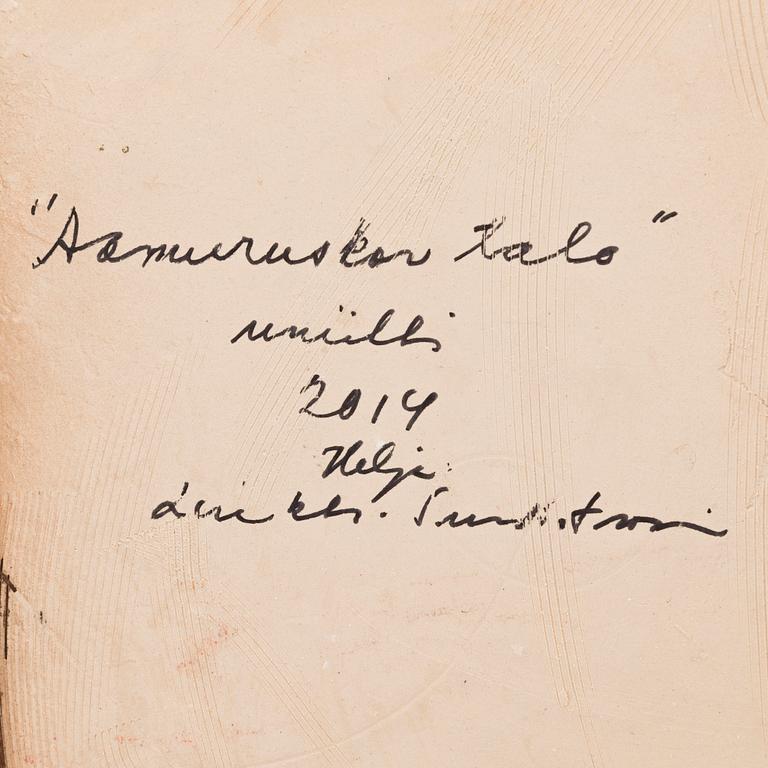 "Aamuruskon talo"
uniikki
2014
Heljä
Liukko-Sundström